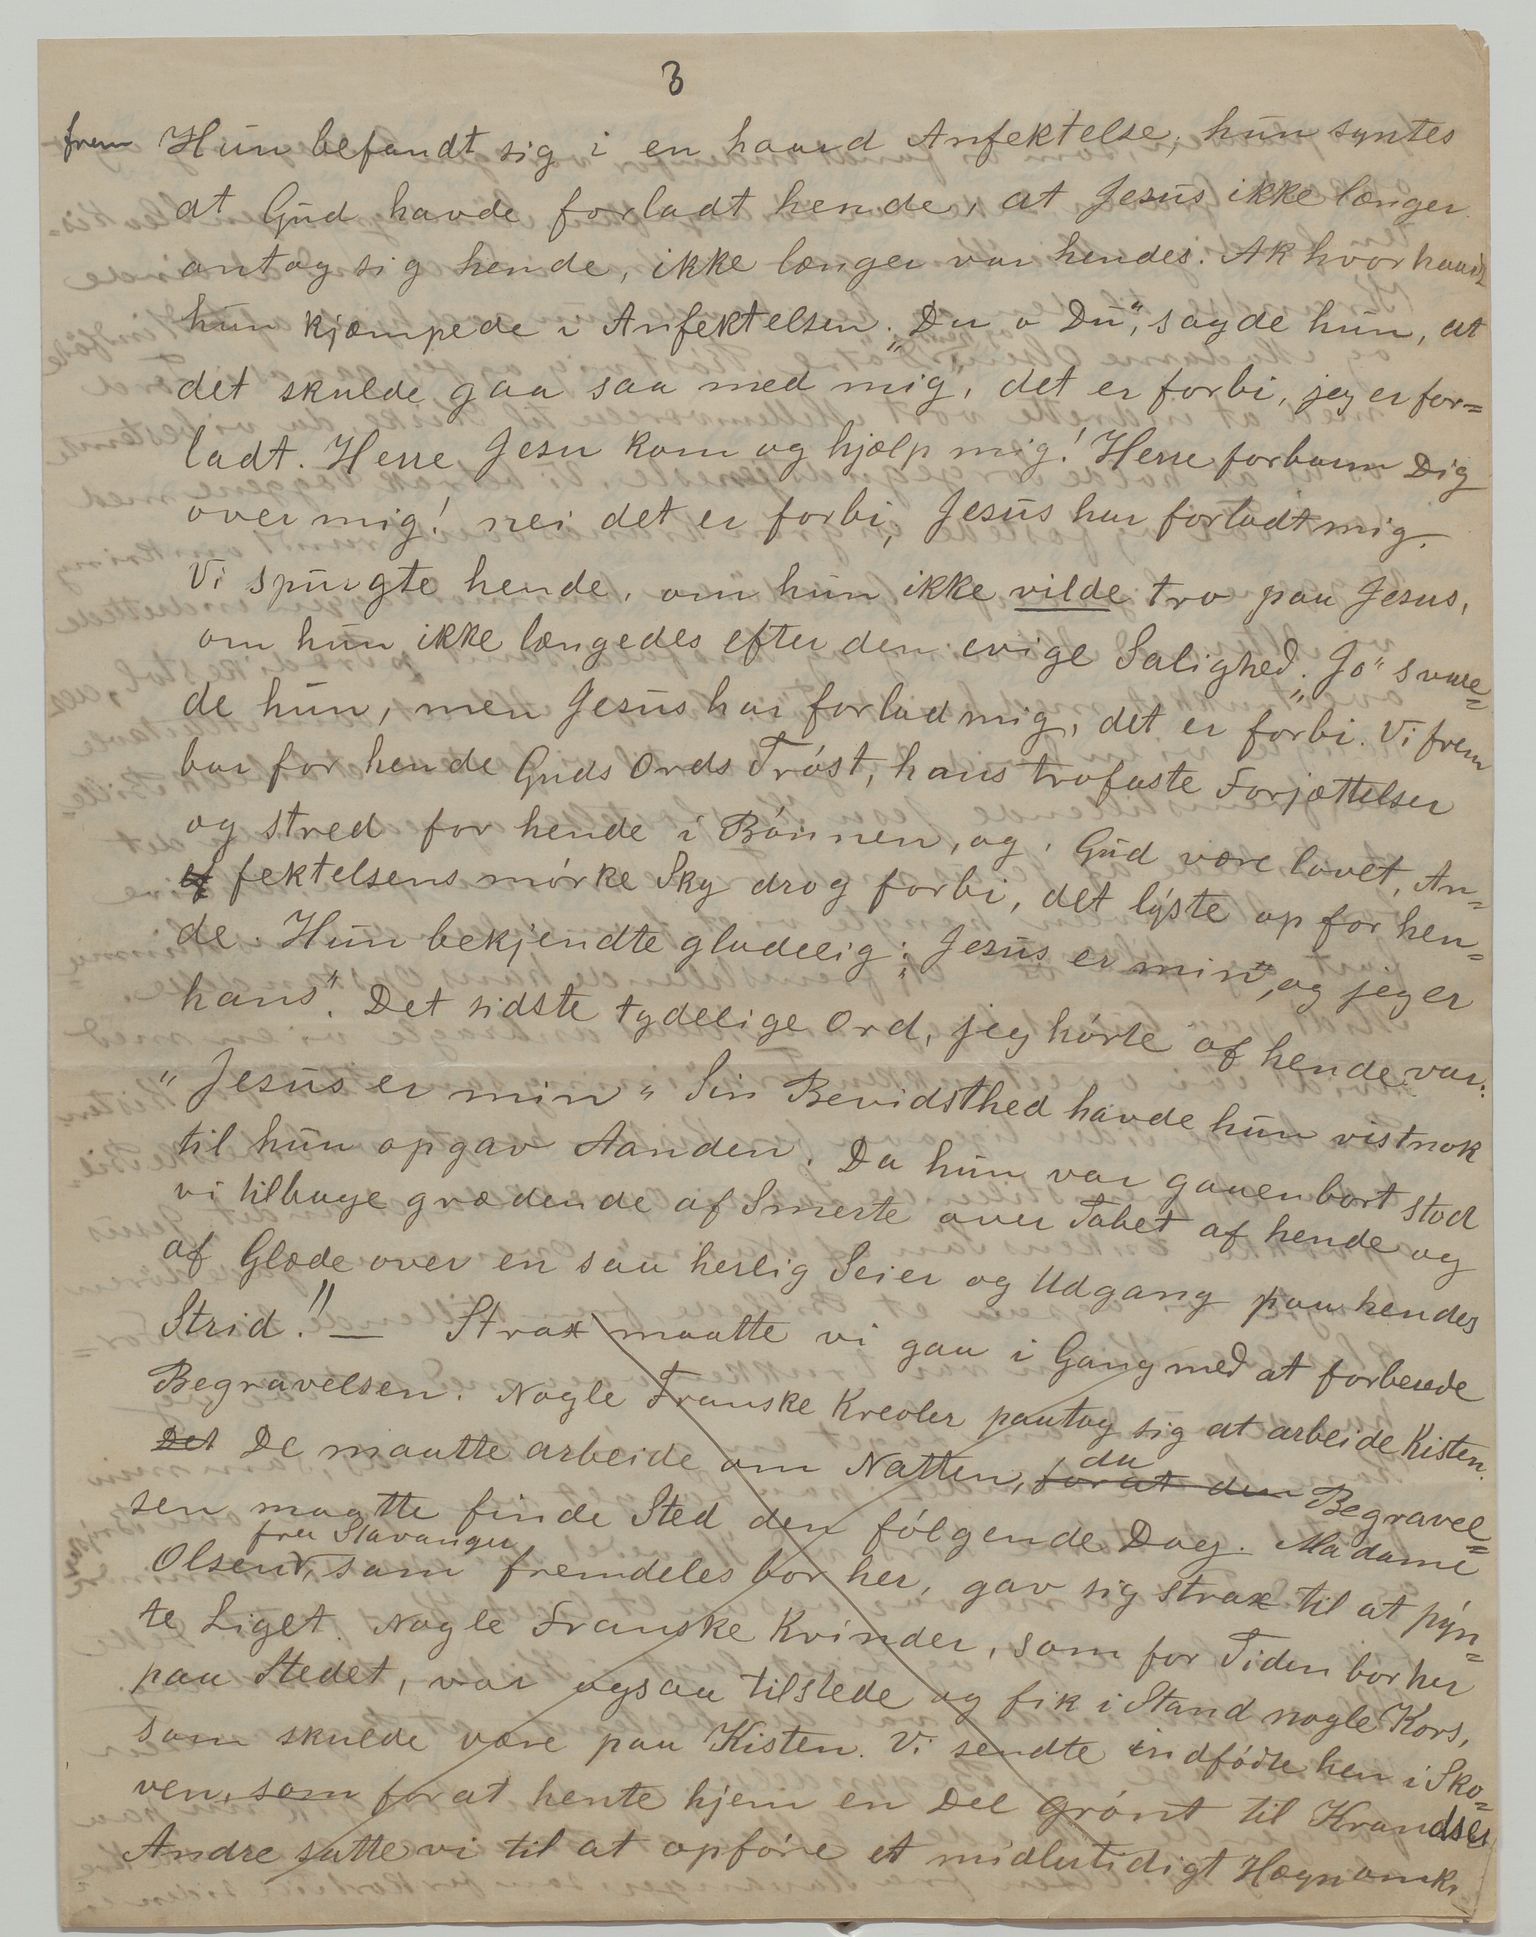 3
frem Hun befandt sig i en haard Anfektelse, hun syntes
at Gud havde forladt hende, at Jesus ikke længer
antog sig hende, ikke længer var hendes. Ak hvor haardt
hun kjæmpede i Anfektelsen. „Du o Du“, sagde hun, at
det skulde gaa saa med mig, det er forbi, jeg er for=
ladt. Herre Jesu kom og hjælp mig! Herre forbarm Dig
over mig! nei det er forbi, Jesus har forladt mig.
Vi spurgte hende, om hun ikke vilde tro paa Jesus,
om hun ikke længedes efter den evige Salighed. „Jo“ svare=
de hun, men Jesus har forlad mig, det er forbi. Vi frem
bar for hende Guds Ords Trøst, hans trofaste Forjættelser
og stred for hende i Bønnen, og, Gud være lovet, An=
fektelsens mørke Sky drog forbi, det lyste op for hen=
de. Hun bekjendte gladelig: „Jesus er min“, og jeg er
hans“. Det sidste tydelige Ord, jeg hørte af hende var:
„Jesus er min“ Sin Bevidsthed havde hun vistnok
til hun opgav Aanden. Da hun var gaaen bort stod
vi tilbage grædende af Smerte over Tabet af hende og
af Glæde over en saa herlig Seier og Udgang paa hendes
Strid!" — Strax maatte vi gaa i Gang med at forberede
Begravelsen. Nogle Franske Kreoler paatog sig at arbeide Kisten.
Det De maatte arbeide om Natten, for at den da Begravel=
sen maatte finde Sted den følgende Dag. Madame
Olsen, fra Stavanger som fremdeles bor her, gav sig strax til at pyn=
te Liget. Nogle Franske Kvinder, som for Tiden bor her
paa Stedet, var ogsaa tilstede og fik i Stand nogle Kors,
som skulde være paa Kisten. Vi sendte indfødte hen i Sko=
ven, som for at hente hjem en Del grønt til Krandse
Andre satte vi til at opføre et midlertidigt Hegn omkr